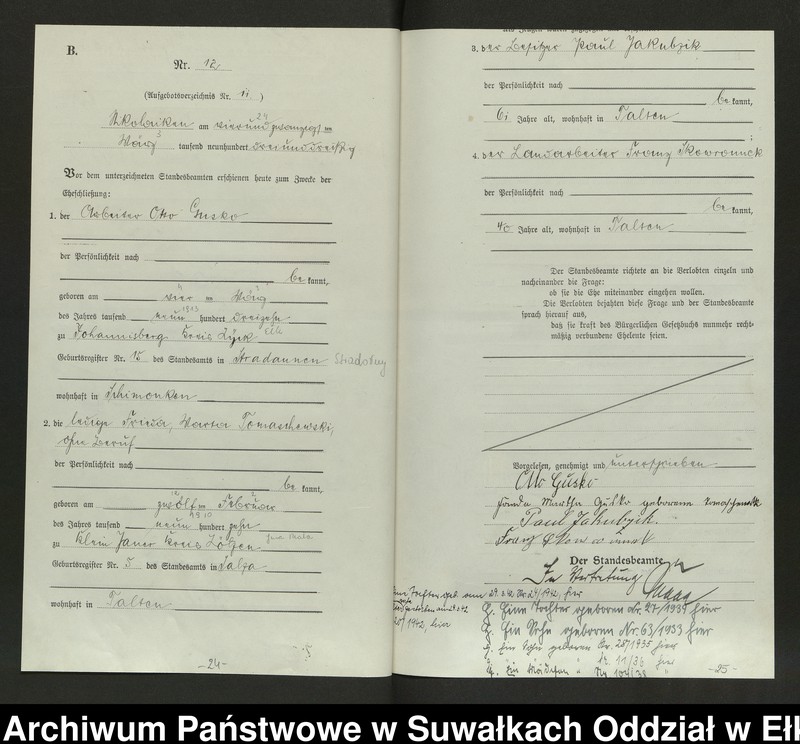 B.
Nr. 12
(Aufgebotsverzeichnis Nr. 11)
Skobriken am vierundzwanzigsten 24
März 3 tausend neunhundert dreiunddreißig
Vor dem unterzeichneten Standesbeamten erschienen heute zum Zwecke der
Eheschließung:
1. der Arbeiter Otto Gusko
der Persönlichkeit nach
be kannt,
geboren am vier ten März 3
des Jahres tausend neun 1913 hundert dreizehn
zu Johannisberg Kreis Lyck Ełk
Geburtsregister Nr. 15 des Standesamts in Stradaunen Straduny
wohnhaft in Schimonken
2. die ledige Frieda, Marta Tomaschewski,
ohne Beruf
der Persönlichkeit nach
be kannt,
geboren am zwölften Februar
des Jahres tausend neun 1910 hundert zehn
zu Klein Jauer Kreis Lötzen
Geburtsregister Nr. 5 des Standesamts in
wohnhaft in Talten
-24-
3. der Besitzer Paul Jakubzik
der Persönlichkeit nach
be kannt,
61 Jahre alt, wohnhaft in Talten
;
4. der Landarbeiter Franz Skowronnek
der Persönlichkeit nach
be kannt,
40 Jahre alt, wohnhaft in Talten
Der Standesbeamte richtete an die Verlobten einzeln und
nacheinander die Frage:
ob sie die Ehe miteinander eingehen wollen.
Die Verlobten bejahten diese Frage und der Standesbeamte
sprach hierauf aus,
daß sie kraft des Bürgerlichen Gesetzbuchs nunmehr recht-
mäßig verbundene Eheleute seien.
Vorgelesen, genehmigt und unterschrieben
Otto Gusko
Frieda Martha Gusko geborene Tomaschewski
Paul Jakubzik.
Franz Skowronnek
Der Standesbeamte
In Vertretung
2. Eine Tochter geboren Nr. 27/1939 hier
2. Ein Sohn geboren Nr. 63/1933 hier
3. Ein Sohn geboren Nr. 28/1935 hier
4. Ein Mädchen " Nr. 11/36 hier
-25-
Archiwum Państwowe w Suwałkach Oddział w Ełk